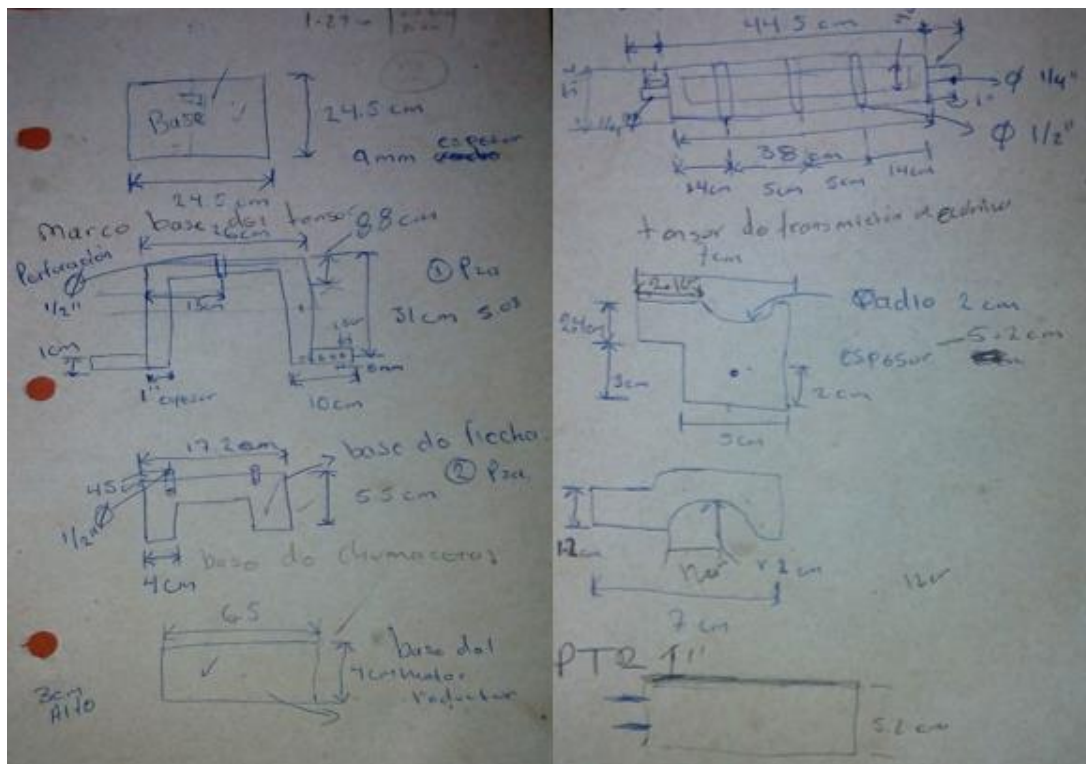 1.27
Base
24.5 cm
9mm espesor
24.5 cm
Marco base del tensor
26cm
8.8cm
Perforación
Ø
1/2"
15cm
① Pza
31cm
1cm
1" espesor
10cm
17.2 cm
base de flecha
② Pza
5.5 cm
Ø
1/2"
4cm
base de chumaceras
6.5
base del
7cm
motor
reductor
3cm
Alto
44.5 cm
Ø 1/4"
1"
Ø 1/2"
38 cm
14cm
5cm
5cm
14cm
tensor de transmisión
7cm
Radio 2 cm
5.2 cm
espesor
3cm
2cm
5cm
1.2cm
r 2 cm
7 cm
PTR 1"
5.2 cm